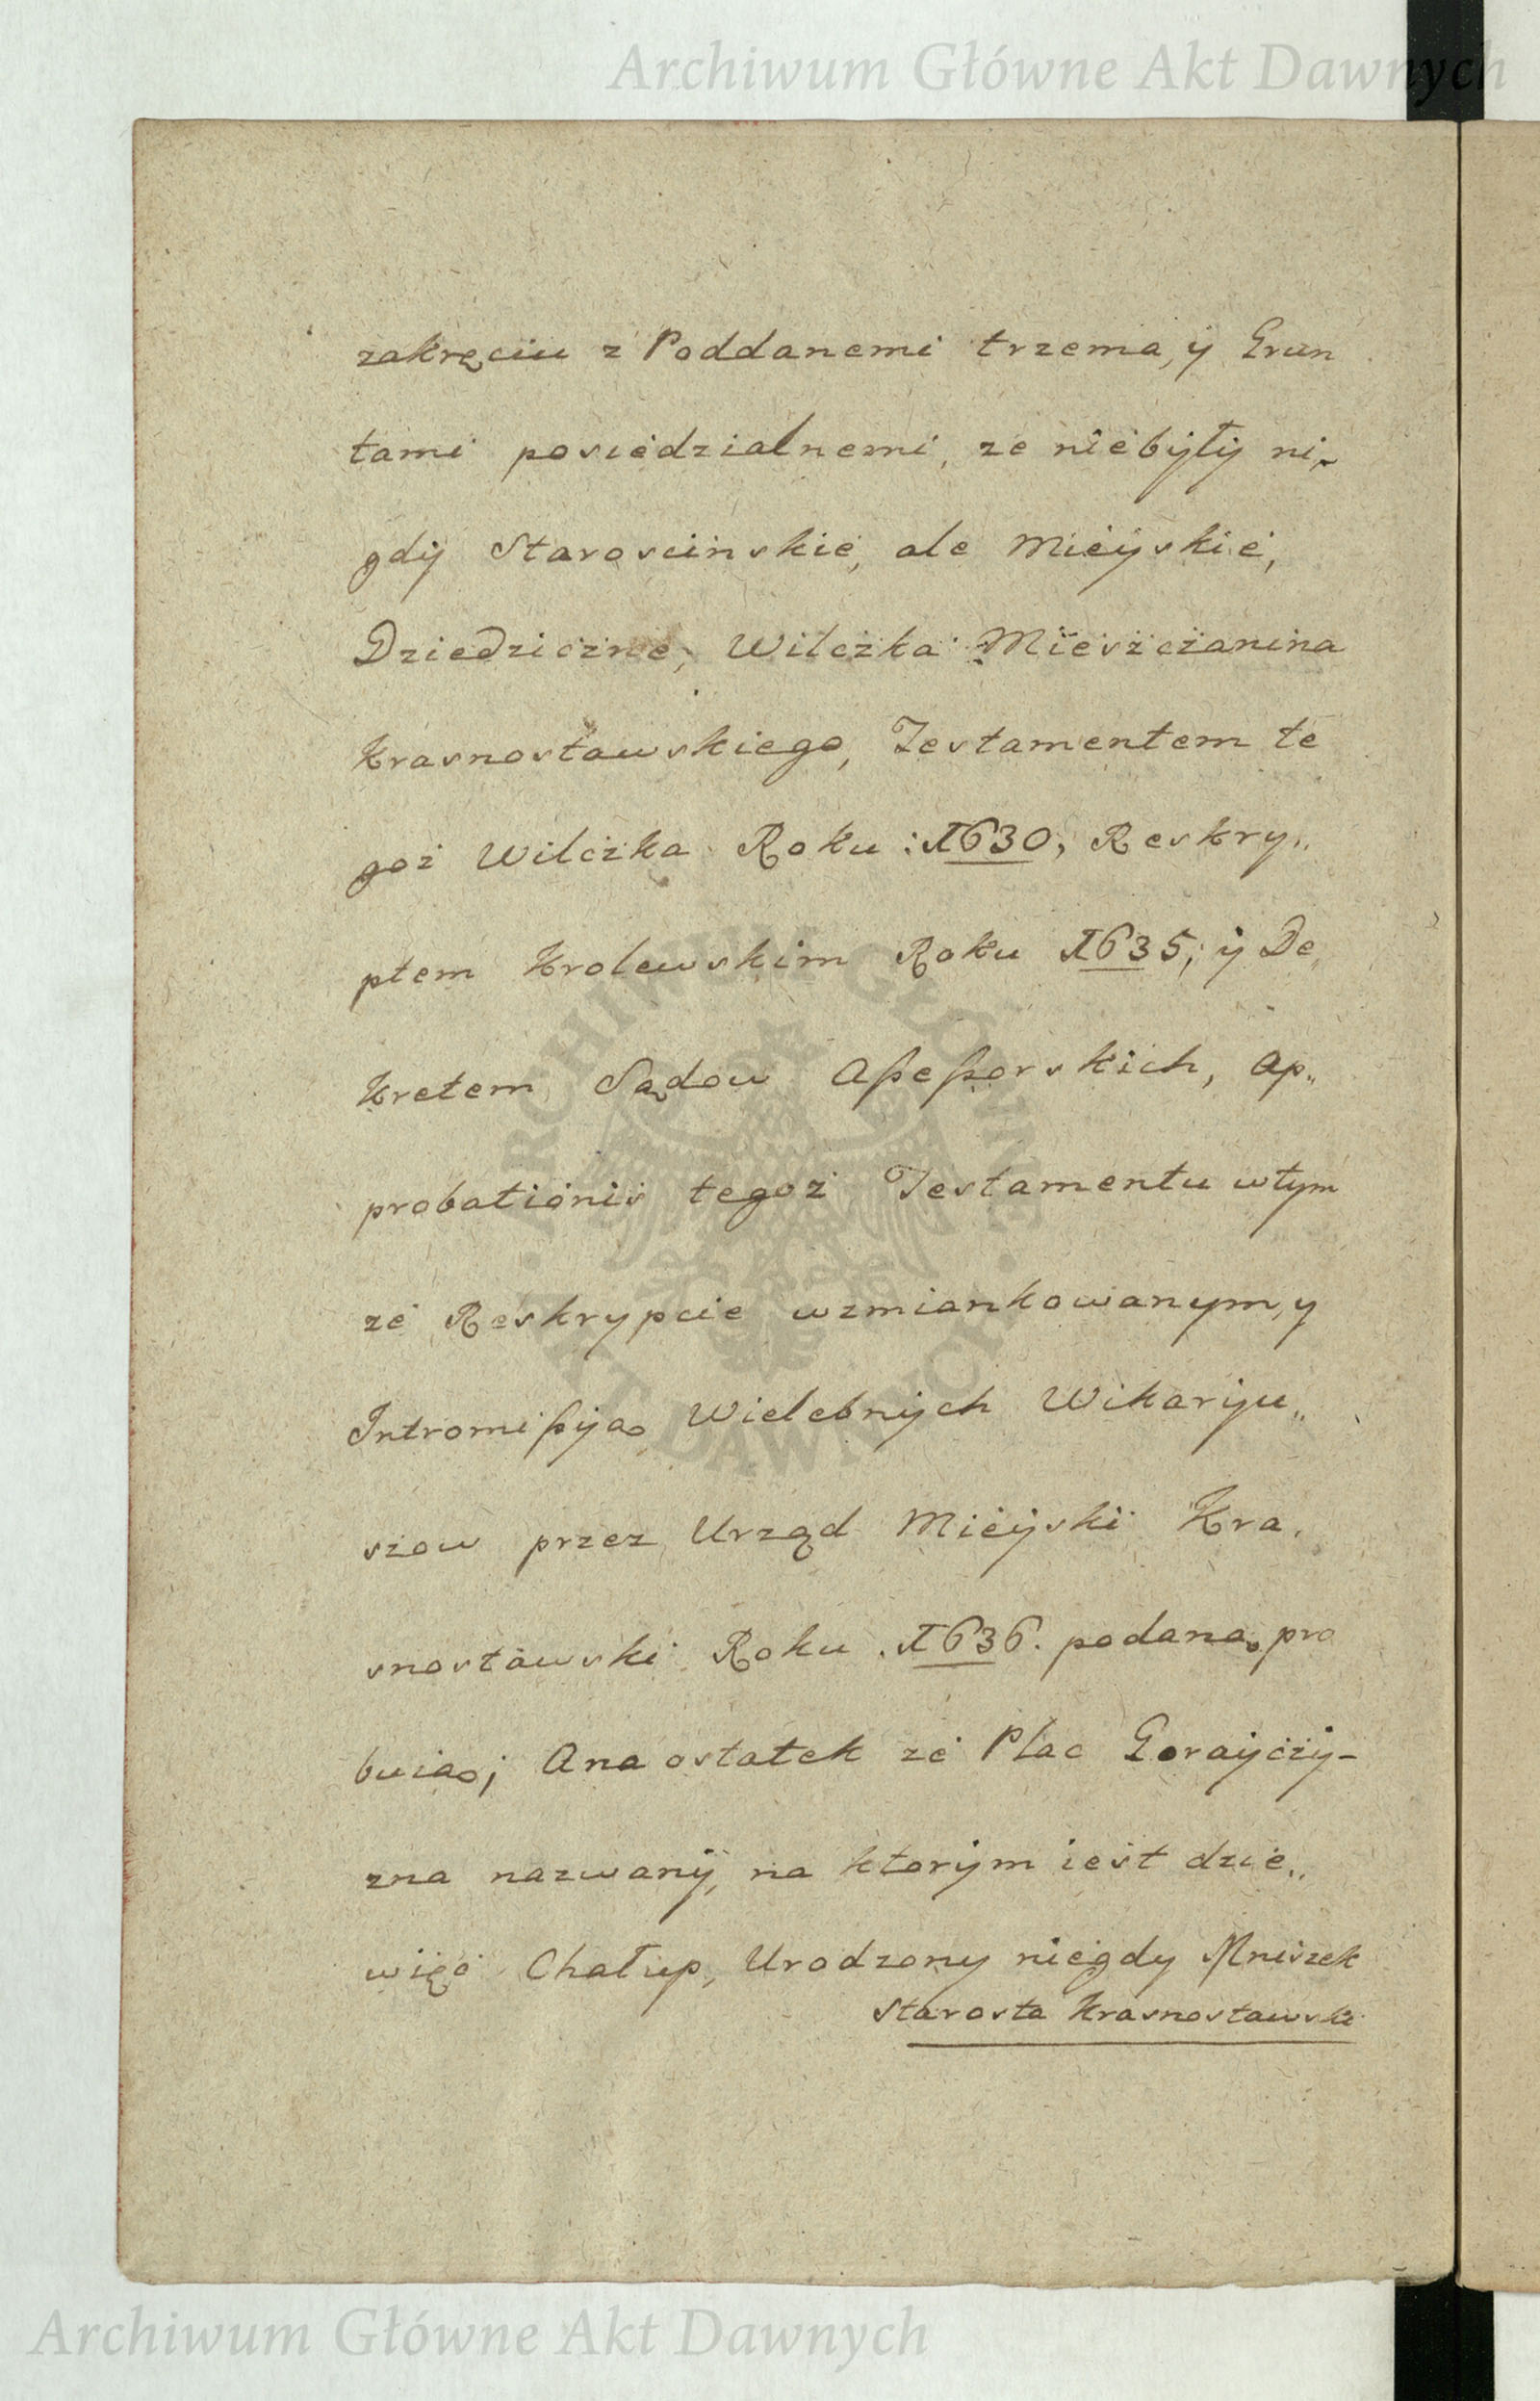 Archiwum Główne Akt Dawnych
zakręciu z Poddanemi trzema, y Grun
tami posiedzialnemi, ze niebyły ni-
gdy Staroscinskie, ale Mieyskie,
Dziedziczne, Wilczka Mieszczanina
Krasnostawskiego, Testamentem te
goż Wilczka Roku :1630, Reskry„
ptem Krolewskim Roku 1635, y De
kretem Sądow Aſseſsorskich, Ap„
probationis tegoż Testamentu wtym
że Reskrypcie wzmiankowanym, y
Intromiſsyą Wielebnych Wikaryu„
szow przez Urząd Mieyski Kra.
snostawski Roku .1636. podaną pro
buią; Ana ostatek że Plac Gorayczy-
zna nazwany, na ktorym iest dzie„
więć Chałup, Urodzony niegdy Mniszek
Starosta Krasnostawski
ARCHIWUM GŁÓWNE · AKT DAWNYCH ·
Archiwum Główne Akt Dawnych